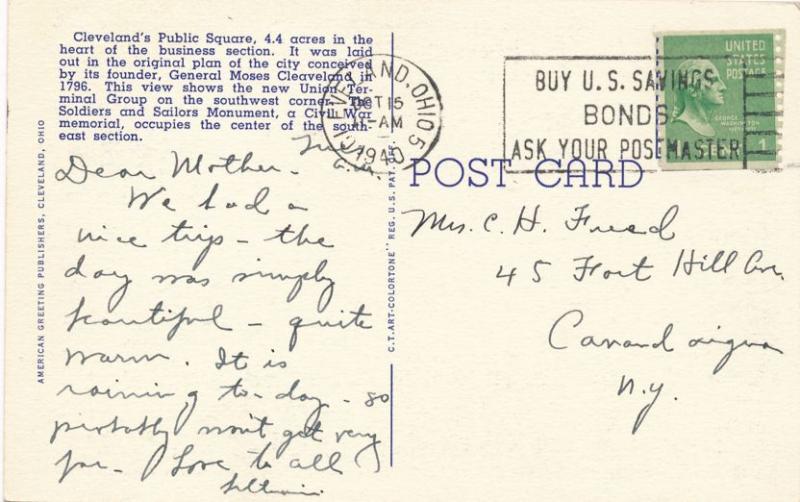 Cleveland's Public Square, 4.4 acres in the
heart of the business section. It was laid
out in the original plan of the city conceived
by its founder, General Moses Cleaveland in
1796. This view shows the new Union Ter-
minal Group on the southwest corner. The
Soldiers and Sailors Monument, a Civil War
memorial, occupies the center of the south-
east section.
AMERICAN GREETING PUBLISHERS, CLEVELAND, OHIO
Dear Mother.
We had a
nice trip - the
day was simply
beautiful - quite
warm. It is
raining to-day - so
probably won't get very
far - Love to all
C.T. ART-COLORTONE" REG. U.S. PAT. OFF.
CLEVELAND, OHIO 5
OCT 15
11-AM
1940
BUY U.S. SAVINGS
BONDS
ASK YOUR POSTMASTER
UNITED
STATES
POSTAGE
GEORGE WASHINGTON
1
POST CARD
Mrs. C. H. Freed
45 Fort Hill Ave.
Canandaigua
N.Y.